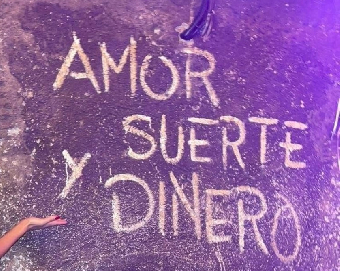 AMOR
SUERTE
Y DINERO